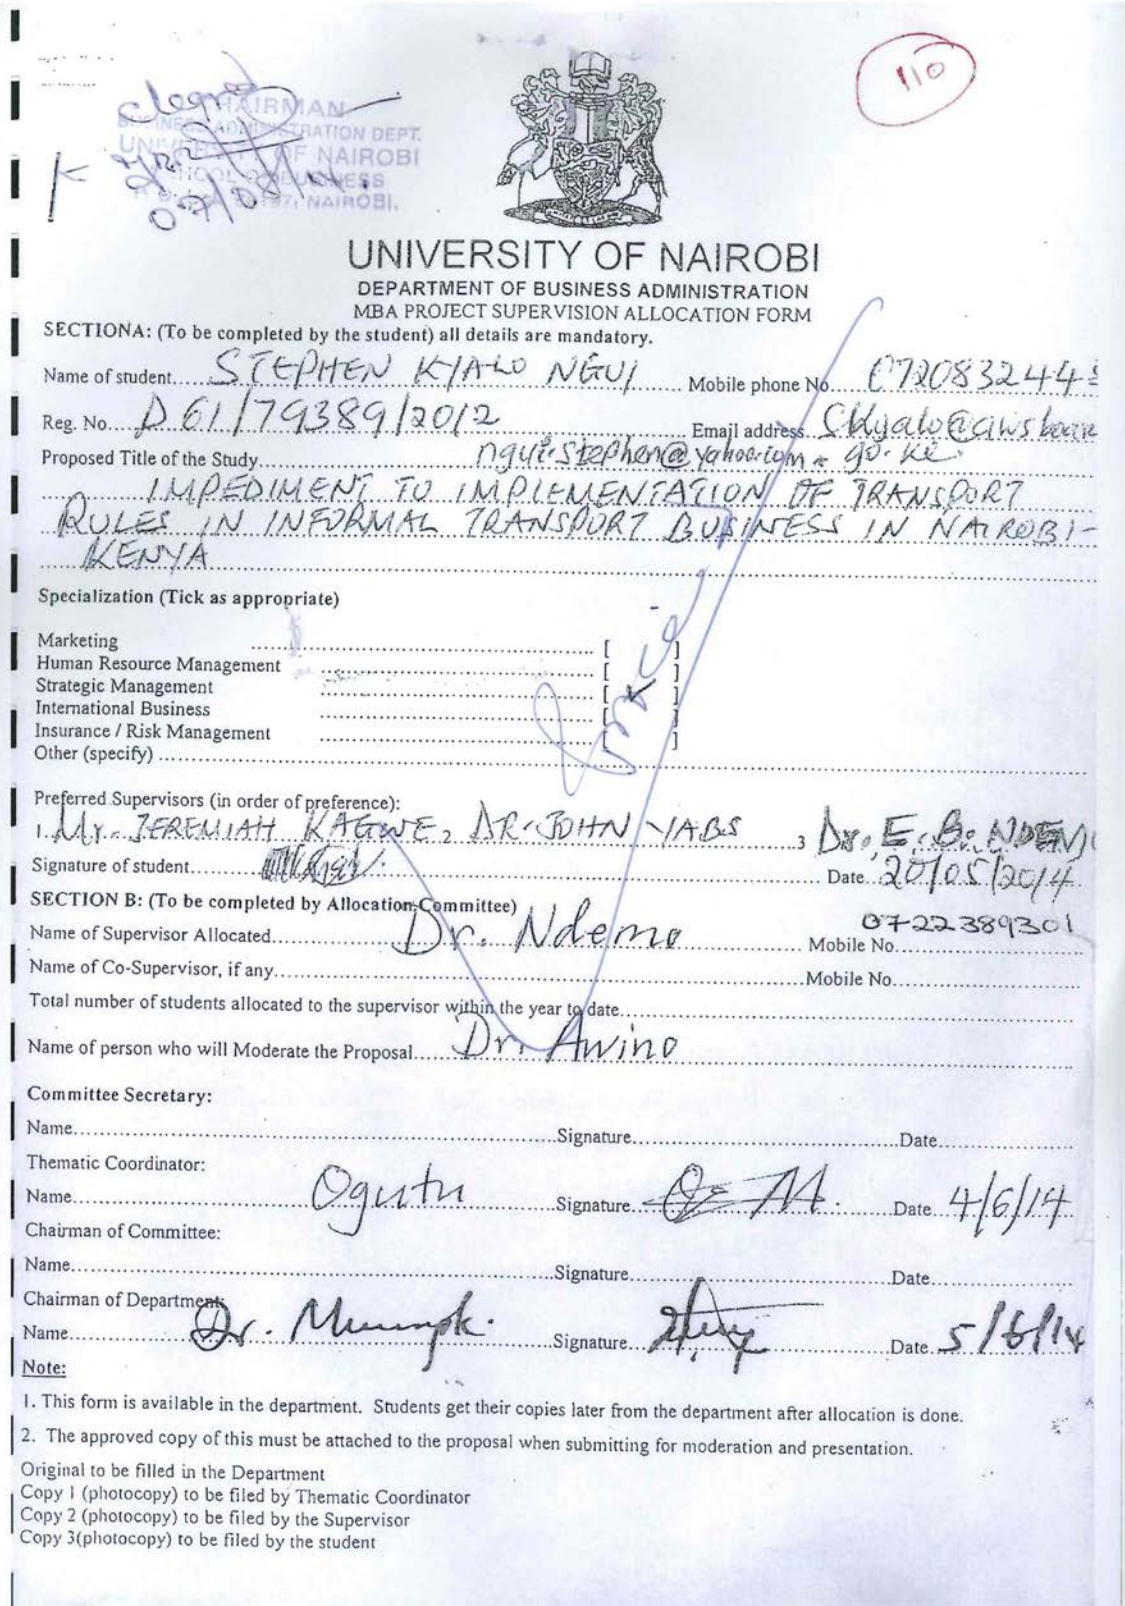 110
CHAIRMAN
BUSINESS ADMINISTRATION DEPT.
UNIVERSITY OF NAIROBI
SCHOOL OF BUSINESS
NAIROBI.
07/08/14
UNIVERSITY OF NAIROBI
DEPARTMENT OF BUSINESS ADMINISTRATION
MBA PROJECT SUPERVISION ALLOCATION FORM
SECTIONA: (To be completed by the student) all details are mandatory.
Name of student.... STEPHEN KYALO NGUI .... Mobile phone No.... 072083244
Reg. No.... D61/79389/2012 .... Email address
Proposed Title of the Study.... ngui.stephen@yahoo.com - go.ke
IMPEDIMENT TO IMPLEMENTATION OF TRANSPORT
RULES IN INFORMAL TRANSPORT BUSINESS IN NAIROBI-
KENYA
Specialization (Tick as appropriate)
Marketing .... [ ]
Human Resource Management .... [ ]
Strategic Management .... [✓]
International Business .... [ ]
Insurance / Risk Management .... [ ]
Other (specify) ....
Preferred Supervisors (in order of preference):
1. Mr. JEREMIAH KAGWE 2 DR. JOHN YABS 3 Dr. E. B. NDEM
Signature of student.... Date 20/05/2014
SECTION B: (To be completed by Allocation Committee)
Name of Supervisor Allocated.... Dr. Ndemo .... Mobile No. 0722389301
Name of Co-Supervisor, if any.... Mobile No....
Total number of students allocated to the supervisor within the year to date....
Name of person who will Moderate the Proposal.... Dr. Awino
Committee Secretary:
Name.... Signature.... Date....
Thematic Coordinator:
Name.... Ogutu Signature.... Date.. 4/6/14
Chairman of Committee:
Name.... Signature.... Date....
Chairman of Department:
Name.... Dr. Signature.... Date.. 5/6/14
Note:
1. This form is available in the department. Students get their copies later from the department after allocation is done.
2. The approved copy of this must be attached to the proposal when submitting for moderation and presentation.
Original to be filled in the Department
Copy 1 (photocopy) to be filed by Thematic Coordinator
Copy 2 (photocopy) to be filed by the Supervisor
Copy 3(photocopy) to be filed by the student